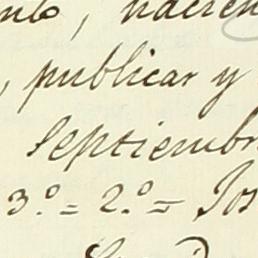 nto, hacien
, publicar y
Septiembr
3.º = 2.º = Jos